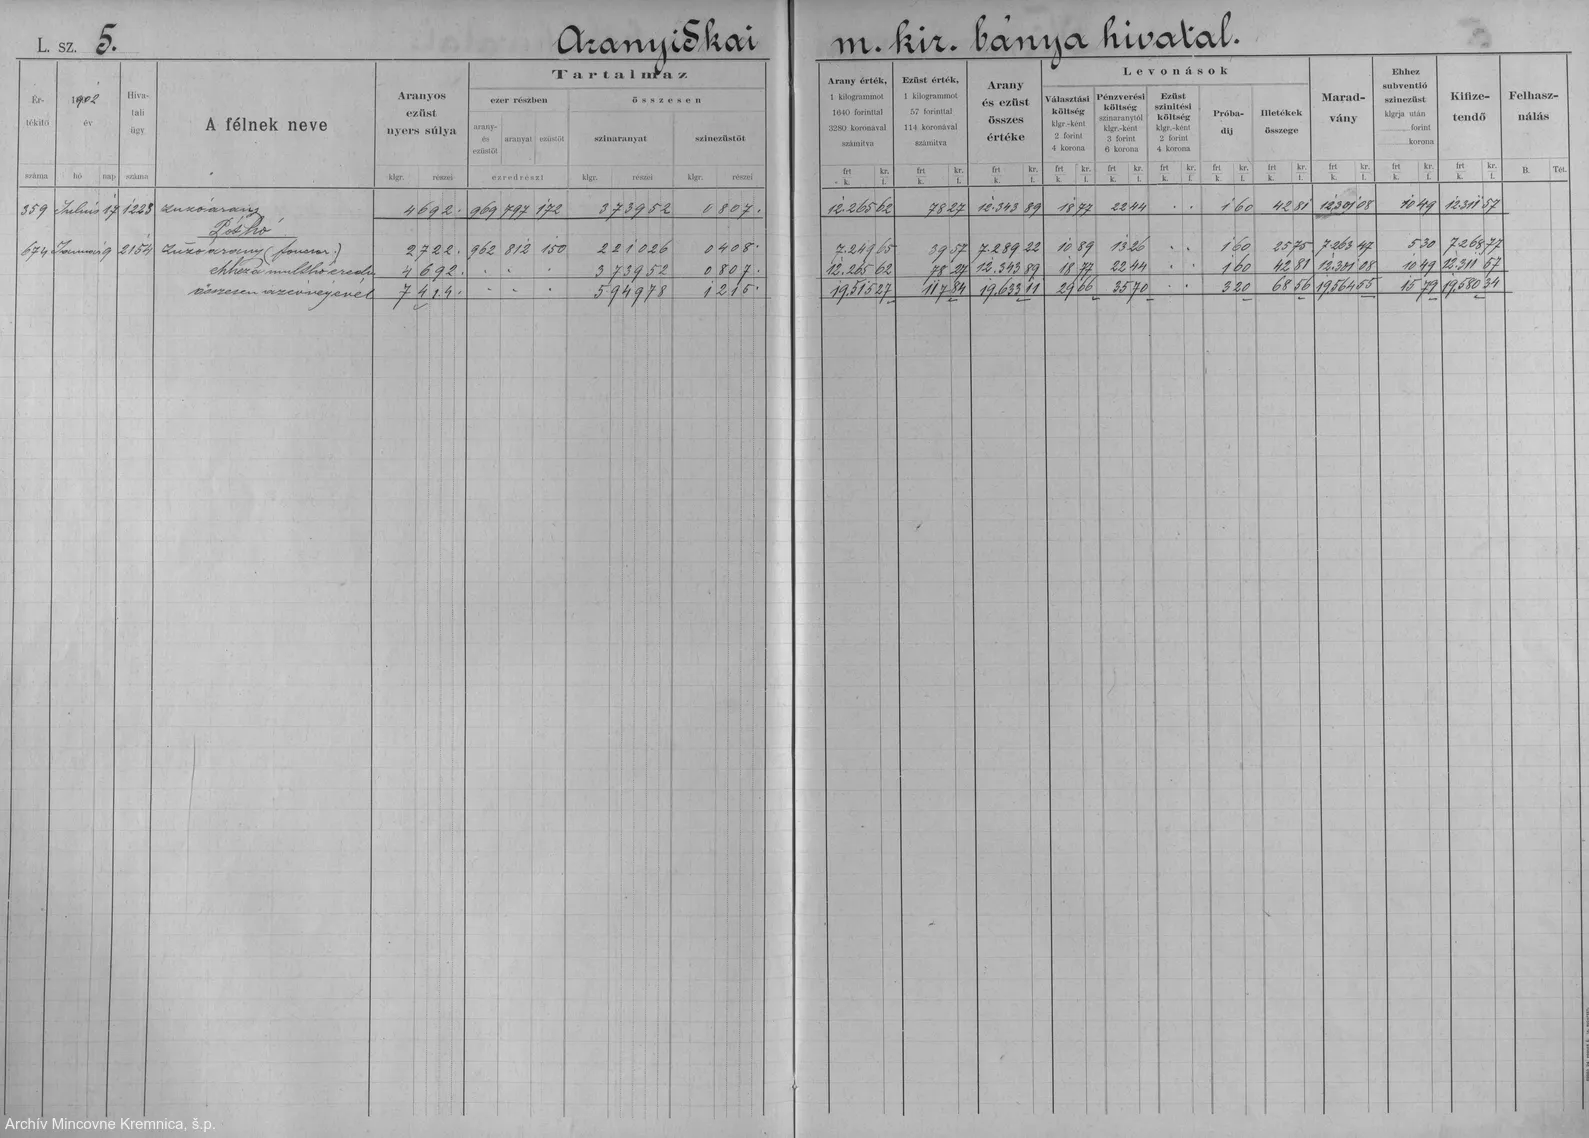 L. sz. 5.
Aranyiskai m. kir. bánya hivatal.
Értékilő száma
1902 év
hó
nap
Hivatali ügy száma
A félnek neve
Aranyos ezüst nyers súlya
klgr. részei
Tartalmaz
ezer részben
arany- és ezüstöt
aranyat
ezüstöt
ezredrészt
összesen
szinaranyat
klgr. részei
szinezüstöt
klgr. részei
Arany érték, 1 kilogrammot 1640 forinttal 3280 koronával számitva
frt kr.
k. f.
Ezüst érték, 1 kilogrammot 57 forinttal 114 koronával számitva
frt kr.
k. f.
Arany és ezüst összes értéke
frt kr.
k. f.
Levonások
Választási költség klgr.-ként 2 forint 4 korona
frt kr.
k. f.
Pénzverési költség szinaranytól klgr.-ként 3 forint 6 korona
frt kr.
k. f.
Ezüst szinitési költség klgr.-ként 2 forint 4 korona
frt kr.
k. f.
Próbadij
frt kr.
k. f.
Illetékek összege
frt kr.
k. f.
Maradvány
frt kr.
k. f.
Ehhez subventió szinezüst klgrja után forint korona
frt kr.
k. f.
Kifizetendő
frt kr.
k. f.
Felhasználás
B. Tét.
359 Julius 17 1223 zúzóarany 4 692 969 797 172 3 739 52 0 807 12.265 62 78 27 12.343 89 18 77 22 44 1 60 42 81 12301 08 10 49 12311 57
674 9 2154 zúzóarany 2 722 962 812 150 2 210 26 0 408 7.249 65 39 57 7.289 22 10 89 13 26 1 60 25 75 7263 47 5 30 7268 77
4 692 3 739 52 0 807 12.265 62 78 27 12.343 89 18 77 22 44 1 60 42 81 12.301 08 10 49 12.311 57
összesen 7 414 5 949 78 1 215 19515 27 117 84 19.633 11 29 66 35 70 3 20 68 56 19564 55 15 79 19580 34
Archív Mincovne Kremnica, š.p.